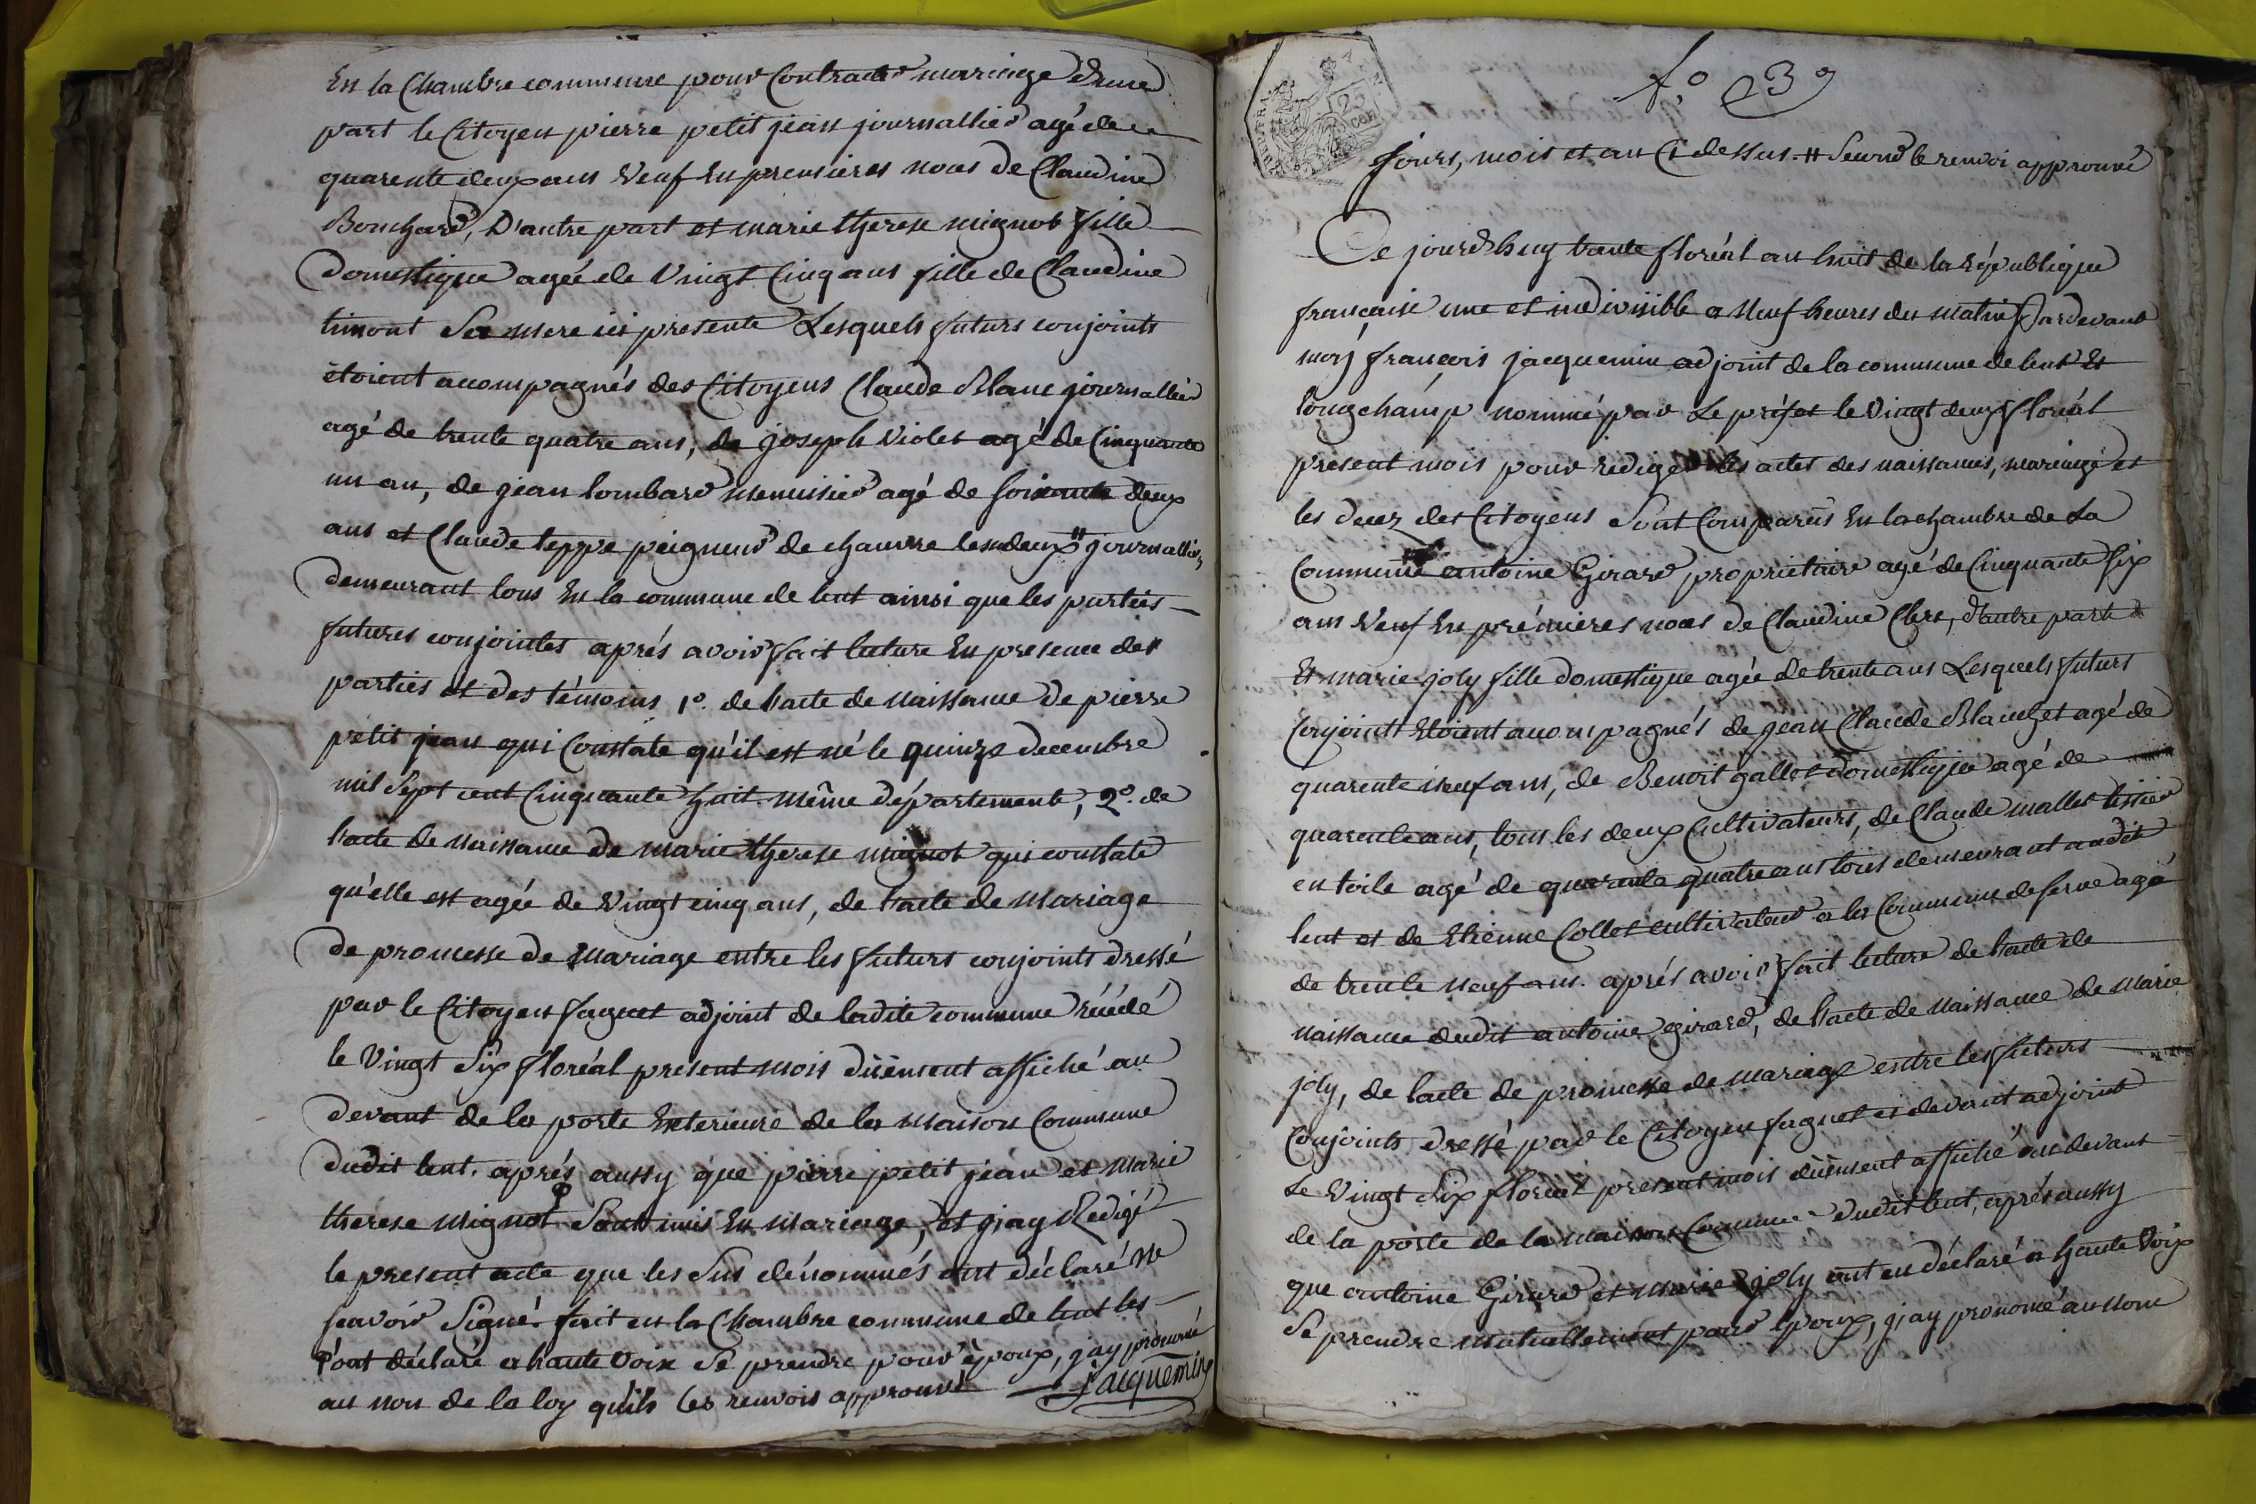 En la Chambre commune pour Contracter mariage d'une
part le Citoyen pierre petit jean journallier agé de
quarente deux ans Veuf En premieres noces de Claudine
Bouchard, D'autre part et marie therese mignot fille
Domestique agée de Vingt Cinq ans fille de Claudine
timont Sa mere ici presente Lesquels futurs conjoints
étoient acompagnés des Citoyens Claude Blanc journallier
agé de trente quatre ans, de joseph Violet agé de Cinquante
un an, de jean lombard menuisier agé de soixante deux
ans et Claude teppe peigneur de chanvre les deux # journalliers
demeurant tous En la commune de lent ainsi que les parties
futures conjointes aprés avoir fait lecture En presence des
parties et des témoins 1º. de l'acte de naissance de pierre
petit jean qui Constate qu'il est né le quinze decembre
mil Sept cent Cinquante huit même département, 2º. de
l'acte de naissance de marie therese mignot qui constate
qu'elle est agée de Vingt cinq ans, de l'acte de mariage
de promesse de mariage entre les futurs conjoints dressé
par le Citoyen faguet adjoint de ladite commune
le Vingt Six floréal present mois düement affiché au
devant de la porte Exterieure de la maison Commune
dudit lent. aprés aussy que pierre petit jean et marie
therese mignot Sont unis En mariage, et j'ay Redigé
le present acte que les Sus dénommés ont déclaré ne
scavoir Signé. fait en la Chambre commune de lent les
ont déclaré a haute voix Se prendre pour époux, j'ay prononcé
au nom de la loy qu'ils les renvois approuvé jacquemin
fº 23
25
CEN
jours, mois et an Ci dessus. # le renvoi approuvé
Ce jourd'huy trente floréal an huit de la République
française une et indivisible a Neuf heures du matin Pardevant
moy françois jacquemin adjoint de la commune de lent Et
longchamp nommé par Le préfet le Vingt deux floréal
présent mois pour rédiger les actes des naissances, mariage et
les decez des Citoyens Sont Comparus En la chambre de La
Commune antoine Girard proprietaire agé de Cinquante Six
ans Veuf En prémieres noces de Claudine Clere, d'autre part
Et marie joly fille domestique agée de trente ans Lesquels futurs
Conjoint Etoient acompagnés de jean Claude Blanchet agé de
quarente neuf ans, de Benoit gallet domestique agé de
quarente ans, tous les deux Cultivateurs, de Claude mallet tissier
en toile agé de quarente quatre ans tous demeurant audit
lent et de Etienne Collet cultivateur a la Commune de serve agé
de trente neuf ans. aprés avoir fait lecture de l'acte de
naissance dudit antoine girard, de l'acte de naissance de marie
joly, de l'acte de promesse de mariage entre les futurs
Conjoints dressé par le Citoyen faguet ci devant adjoint
Le Vingt Six floreal present mois düement affiché au devant
de la porte de la maison Commune dudit lent, aprés aussy
que antoine Girard et marie joly ont eu déclaré a haute Voix
Se prendre mutuellement pour époux, j'ay prononcé au nom